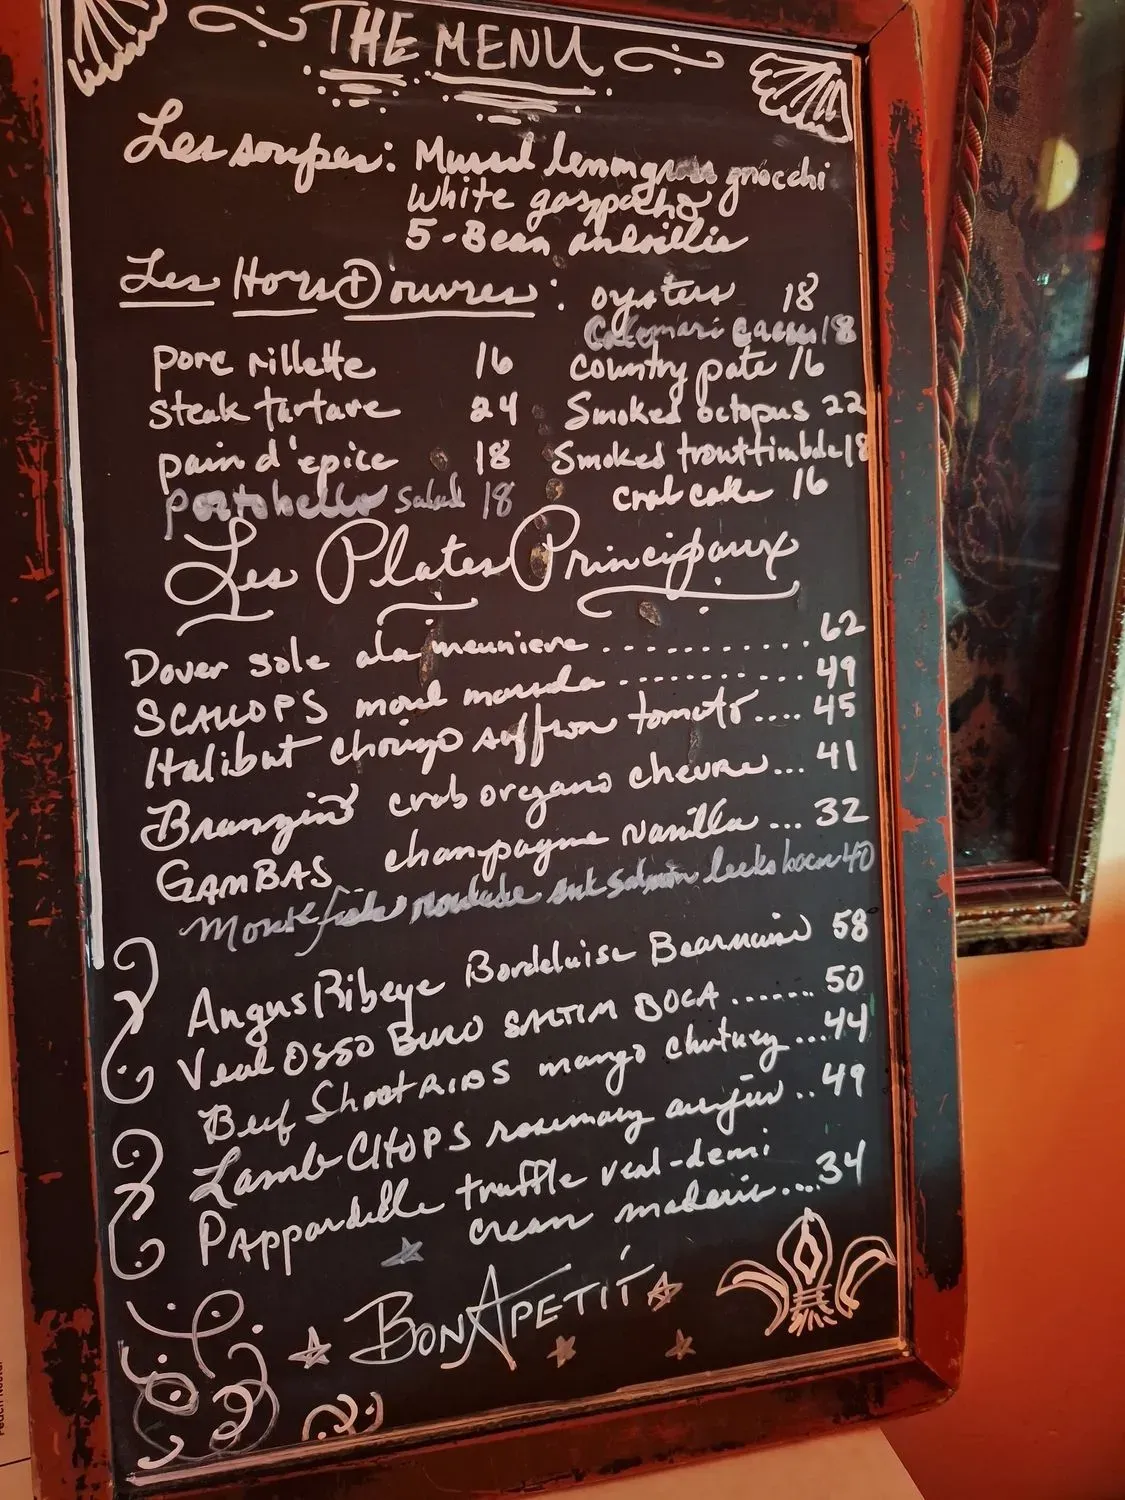 THE MENU
Les soupes: Mussel lemongrass gnocchi
White gazpacho
5-Bean andouille
Les Hors D'ouvres: oysters 18
Calamari 18
porc rillette 16 country pate 16
steak tartare 24 Smoked octopus 22
pain d'epice 18 Smoked trout timbale 18
portobello salad 18 crab cake 16
Les Plates Principaux
Dover sole ala meuniere ........... 62
SCALLOPS morel marsala .......... 49
Halibut chorizo saffron tomato .... 45
Branzino crab oregano chevre ... 41
GAMBAS champagne vanilla ... 32
Monkfish roulade salmon leeks 40
Angus Ribeye Bordelaise Bearnaise 58
Veal OSSO BUCO SALTIM BOCA ....... 50
Beef Short RIBS mango chutney ... 44
Lamb CHOPS rosemary au jus .. 49
PAppardelle truffle veal-demi
cream maderia .... 34
BON APETIT